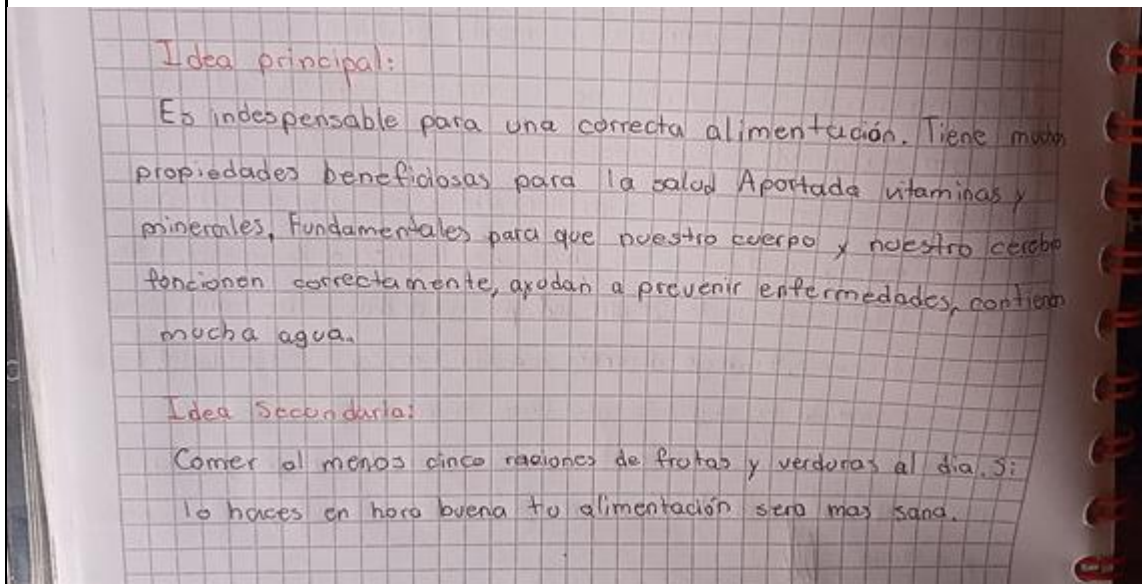 Idea principal:
Es indespensable para una correcta alimentación. Tiene muchas
propiedades beneficiosas para la salud Aportada vitaminas y
minerales, Fundamentales para que nuestro cuerpo y nuestro cerebro
foncionen correctamente, ayudan a prevenir enfermedades, contienen
mucha agua.
Idea Secundaria:
Comer al menos cinco raciones de frutas y verduras al dia. Si
lo haces en hora buena tu alimentación sera mas sana.